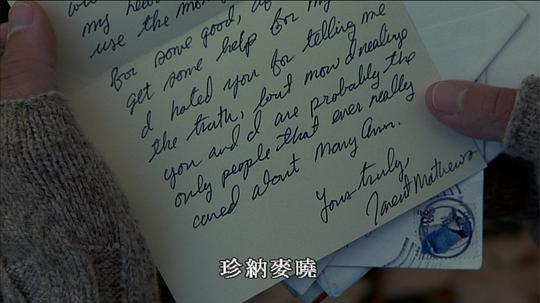 my hea
use the mone
for some good,
get some help for my
I hated you for telling me
the truth, but now I realize
you and I are probably the
only people that ever really
cared about Mary Ann.
Yours truly,
Janet Mathews
珍納麥曉